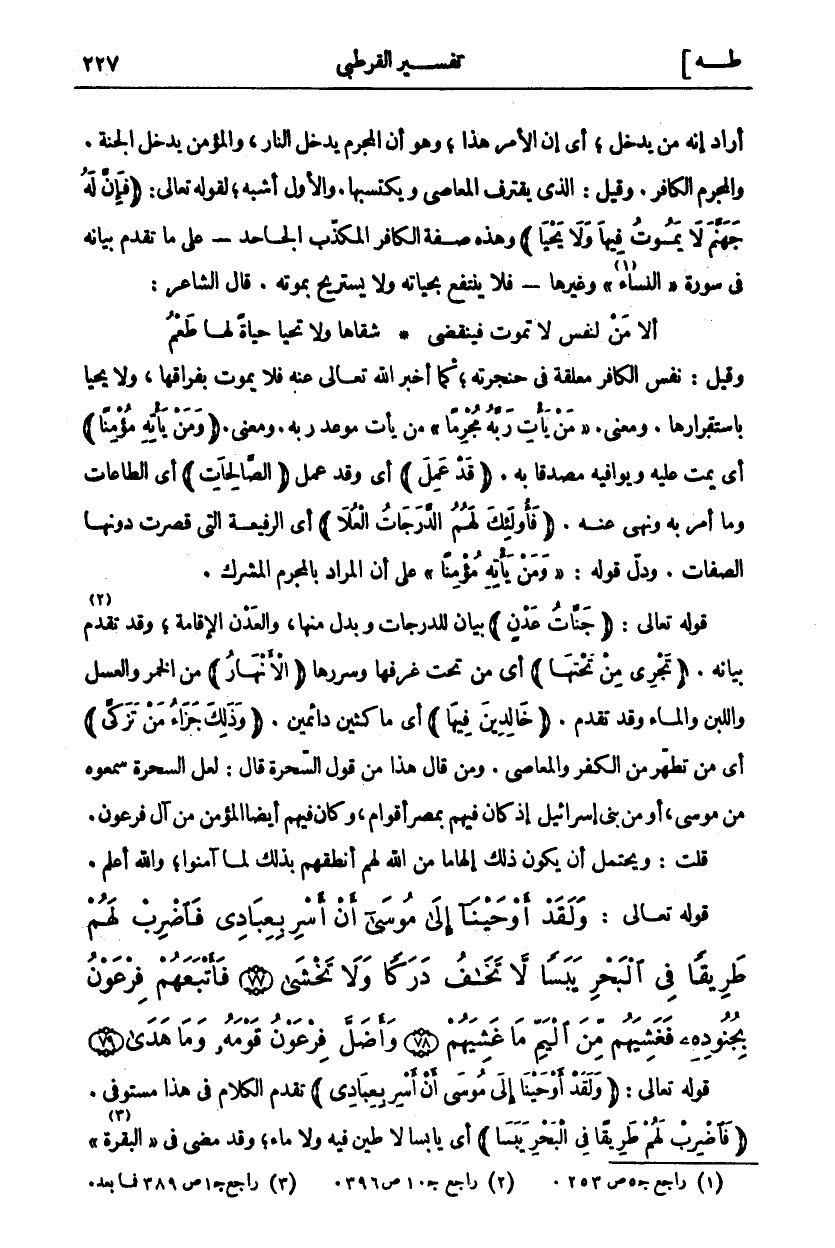 طـــه ] تفســـير القرطبى ٢٢٧
أراد إنه من يدخل ؛ أى إن الأمر هذا ؛ وهو أن المجرم يدخل النار ، والمؤمن يدخل الجنة .
والمجرم الكافر . وقيل : الذى يقترف المعاصى ويكتسبها . والأول أشبه ؛ لقوله تعالى : ﴿ فَإِنَّ لَهُ
جَهَنَّمَ لَا يَمُـوتُ فِيهَا وَلَا يَحْيَا ﴾ وهذه صفـة الكافر المكذّب الجـاحد — على ما تقدم بيانه
فى سورة « النساء (١) » وغيرها — فلا ينتفع بحياته ولا يستريح بموته . قال الشاعر :
ألا مَنْ لنفس لا تموت فينقضى * شقاها ولا تحيا حياةً لهـا طَعْمُ
وقيل : نفس الكافر معلقة فى حنجرته ؛ كما أخبر الله تعـالى عنه فلا يموت بفراقها ، ولا يحيا
باستقرارها . ومعنى . « مَنْ يَأْتِ رَبَّهُ مُجْرِمًا » من يأت موعد ربه . ومعنى . ﴿ وَمَنْ يَأْتِهِ مُؤْمِنًا ﴾
أى يمت عليه ويوافيه مصدقا به . ﴿ قَدْ عَمِلَ ﴾ أى وقد عمل ﴿ الصَّالِحَاتِ ﴾ أى الطاعات
وما أمر به ونهى عنـه . ﴿ فَأُولَئِكَ لَهُمُ الدَّرَجَاتُ الْعُلَا ﴾ أى الرفيعـة التى قصرت دونهـا
الصفات . ودلّ قوله : « وَمَنْ يَأْتِهِ مُؤْمِنًا » على أن المراد بالمجرم المشرك .
قوله تعالى : ﴿ جَنَّاتُ عَدْنٍ ﴾ بيان للدرجات وبدل منها ، والعَدْن الإقامة ؛ وقد تقدم (٢)
بيانه . ﴿ تَجْرِى مِنْ تَحْتِهَا ﴾ أى من تحت غرفها وسررها ﴿ الْأَنْهَارُ ﴾ من الخمر والعسل
واللبن والمـاء وقد تقدم . ﴿ خَالِدِينَ فِيهَا ﴾ أى ماكثين دائمين . ﴿ وَذَلِكَ جَزَاءُ مَنْ تَزَكَّى ﴾
أى من تطهّر من الكفر والمعاصى . ومن قال هذا من قول السّحرة قال : لعل السحرة سمعوه
من موسى ، أو من بنى إسرائيل إذ كان فيهم بمصر أقوام ، وكان فيهم أيضا المؤمن من آل فرعون .
قلت : ويحتمل أن يكون ذلك إلهاما من الله لهم أنطقهم بذلك لمـا آمنوا ؛ والله أعلم .
قوله تعـالى : وَلَقَدْ أَوْحَيْنَـآ إِلَىٰ مُوسَىٰٓ أَنْ أَسْرِ بِعِبَادِى فَٱضْرِبْ لَهُمْ
طَرِيقًا فِى ٱلْبَحْرِ يَبَسًا لَّا تَخَـٰفُ دَرَكًا وَلَا تَخْشَىٰ ﴿٧٧﴾ فَأَتْبَعَهُمْ فِرْعَوْنُ
بِجُنُودِهِۦ فَغَشِيَهُم مِّنَ ٱلْيَمِّ مَا غَشِيَهُمْ ﴿٧٨﴾ وَأَضَلَّ فِرْعَوْنُ قَوْمَهُۥ وَمَا هَدَىٰ ﴿٧٩﴾
قوله تعالى : ﴿ وَلَقَدْ أَوْحَيْنَا إِلَى مُوسَى أَنْ أَسْرِ بِعِبَادِى ﴾ تقدم الكلام فى هذا مستوفى .
﴿ فَٱضْرِبْ لَهُمْ طَرِيقًا فِى الْبَحْرِ يَبَسًا ﴾ أى يابسا لا طين فيه ولا ماء ؛ وقد مضى فى « البقرة (٣) »
(١) راجع جـ٥ ص ٢٥٣ . (٢) راجع جـ١٠ ص ٣٩٦ . (٣) راجع جـ١ ص ٣٨٩ فـا بعد .